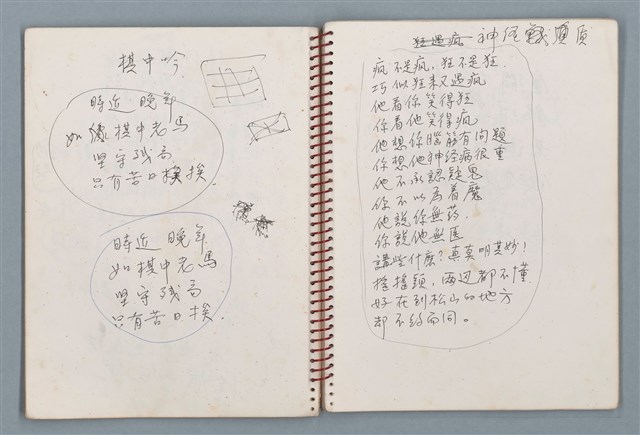 棋中吟
時近 晚年
如像棋中老馬
坚守残局
只有苦口挨挨.
時近 晚年
如棋中老馬
坚守残局
只有苦口挨.
狂遇疯 神经質
疯不是疯, 狂不是狂.
巧似狂来又遇疯
他看你笑得狂
你看他笑得疯
他想你腦筋有问题
你想他神经病很重
他不承認疑鬼
你不以為着魔
他說你無药.
你說他無医
講些什麽? 真莫明其妙!
搖搖頭, 兩边都不懂
好在到松山的地方
却不约而同。